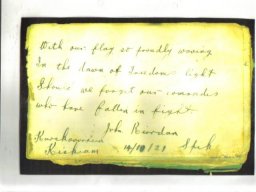 With our flag so proudly waving
In the dawn of freedoms light
Should we forget our comrades
who have fallen in fight
John Riordan
Kiskeam 14/10/21